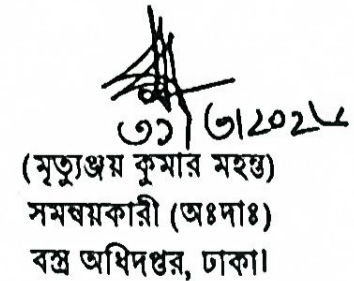 ৩১/৩/২০২৫
(মৃত্যুঞ্জয় কুমার মহন্ত)
সমন্বয়কারী (অঃদাঃ)
বস্ত্র অধিদপ্তর, ঢাকা।